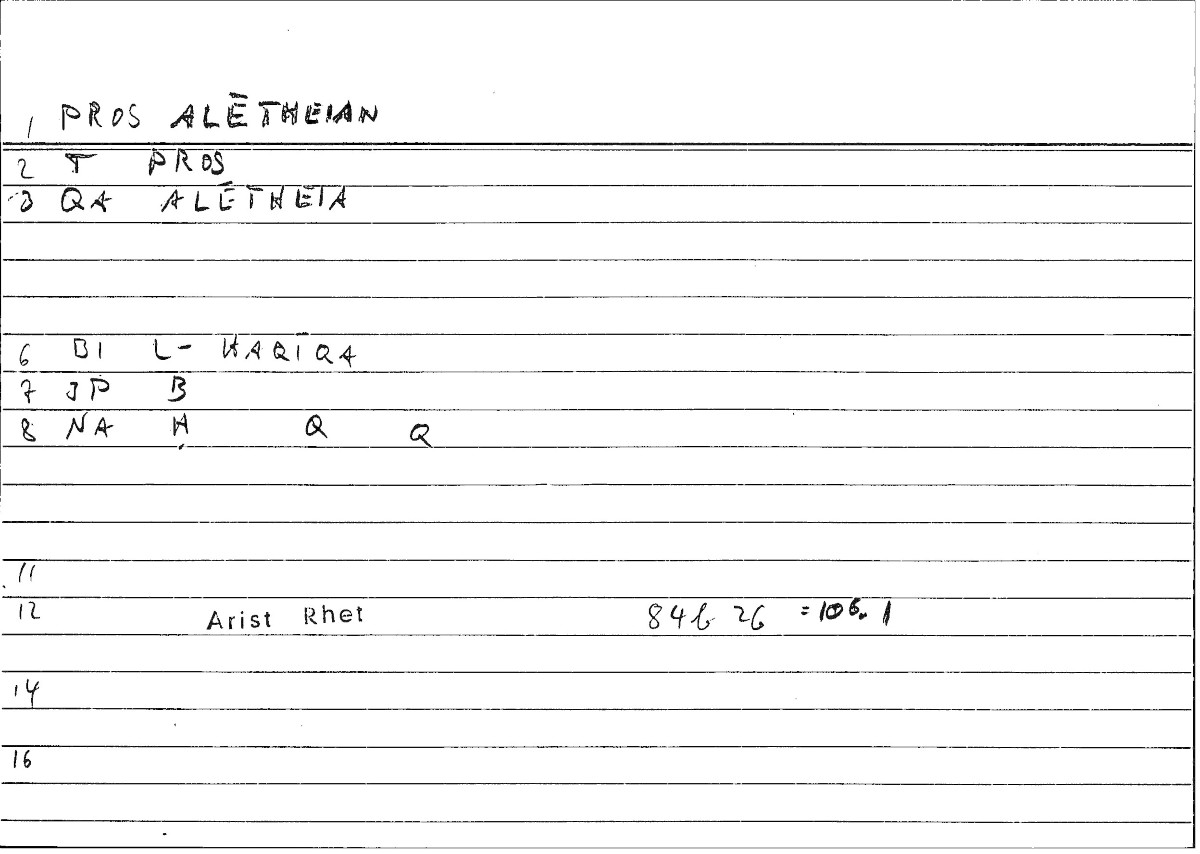 1 PROS ALĒTHEIAN
2 T PROS
3 QA ALĒTHEIA
6 BI L- HAQĪQA
7 JP B
8 NA Ḥ Q Q
11
12 Arist Rhet 84b 26 = 106.1
14
16